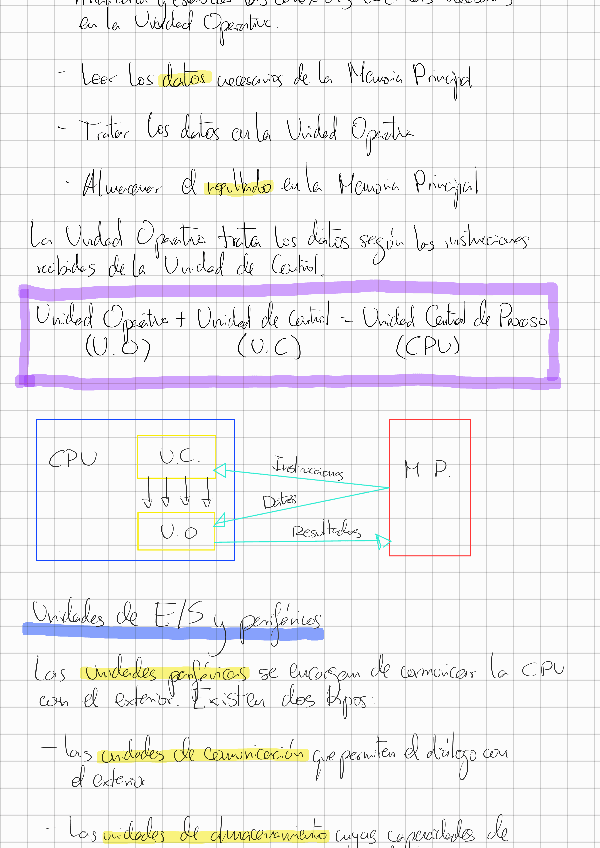 en la Unidad Operativa.
- Leer los datos necesarios de la Memoria Principal
- Tratar los datos en la Unidad Operativa
- Almacenar el resultado en la Memoria Principal
La Unidad Operativa trata los datos según las instrucciones
recibidas de la Unidad de Control.
Unidad Operativa + Unidad de Control = Unidad Central de Proceso
(U.O) (U.C) (CPU)
CPU
U.C.
U.O
Instrucciones
Datos
Resultados
M P.
Unidades de E/S y periféricos
Las unidades periféricas se encargan de comunicar la CPU
con el exterior. Existen dos tipos:
- Las unidades de comunicación que permiten el diálogo con
el exterior
- Las unidades de almacenamiento cuyas capacidades de